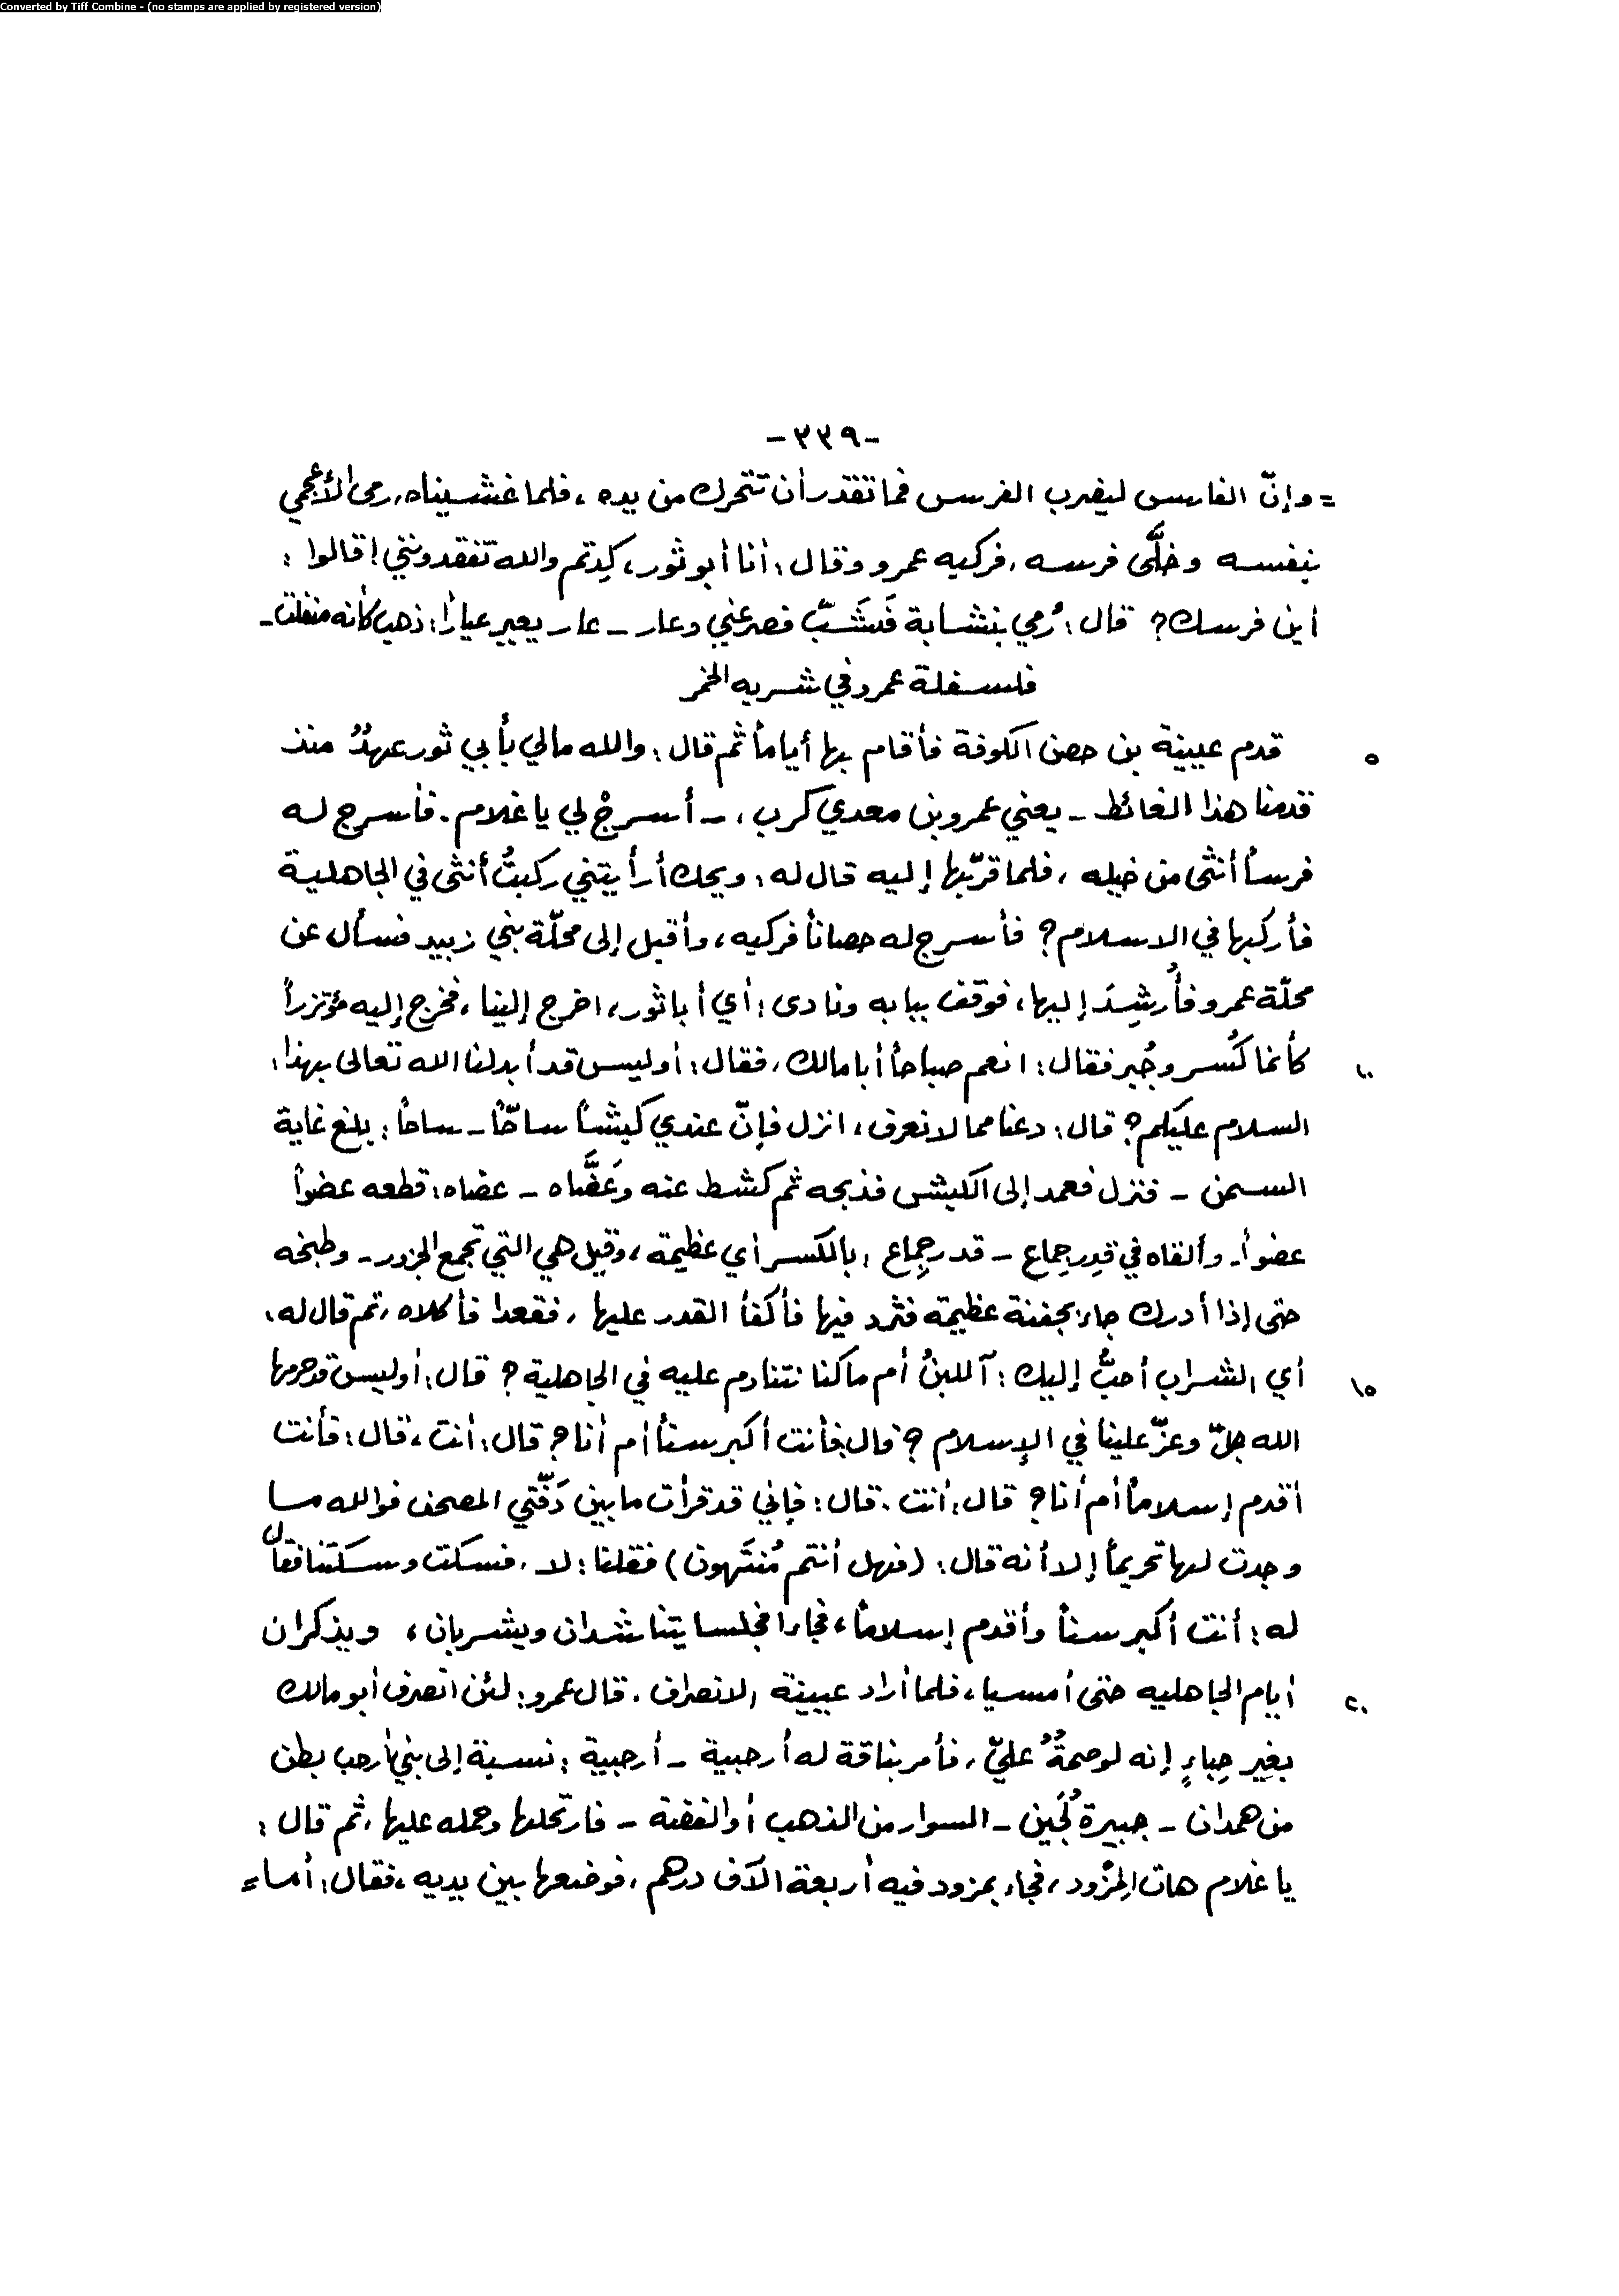 Converted by Tiff Combine - (no stamps are applied by registered version)
-٣٣٩-
= وإنّ الفارس ليضرب الفرس فما تقدر أن تتحرك من يده ، فلما غشيناه، رمى الأعجمي
بنفسه وخلَّى فرسه ، فركبه عمرو وقال : أنا أبو ثور، كِدتم والله تفقدونني ! قالوا :
أين فرسك؟ قال : رُمي بنشابة فَشَبّ فصرعني وعار - عار يعير عياراً : ذهب كأنه منفلت -
فلسفلة عمرو في شربه الخمر
قدم عيينة بن حصن الكوفة فأقام بها أياماً ثم قال : والله مالي بأبي ثور عهدٌ منذ
٥
قدمنا هذا الغائط - يعني عمرو بن معدي كرب ، - أسرجْ لي يا غلام . فأسرج له
فرساً أنثى من خيله ، فلما قرّبها إليه قال له : ويحك أرأيتني ركبتُ أنثى في الجاهلية
فأركبها في الاسلام ؟ فأسرج له حصاناً فركبه ، وأقبل إلى محلّة بني زبيد فسأل عن
محلّة عمرو فأُرشِدَ إليها ، فوقف ببابه ونادى : أي أبا ثور، اخرج إلينا ، فخرج إليه مؤتزراً
كأنما كُسر وجُبر فقال : انعم صباحاً أبا مالك ، فقال : أوليس قد أبدلنا الله تعالى بهذا :
١٠
السلام عليكم ؟ قال : دعنا مما لا نعرف ، انزل فإنّ عندي كبشاً ساحّاً - ساحاً : بلغ غاية
السمن - فنزل فعمد إلى الكبش فذبحه ثم كشط عنه وَعَضَّاه - عضاه : قطعه عضواً
عضواً - وألقاه في قِدر جِماع - قدر جِماع : بالكسر أي عظيمة ، وقيل هي التي تجمع الجزور - وطبخه
حتى إذا أدرك جاء بجفنة عظيمة فثرد فيها فأكفأ القدر عليها ، فقعدا فأكلاه ، ثم قال له :
أي الشراب أحبُّ إليك : آللبنُ أم ما كنا نتنادم عليه في الجاهلية ؟ قال : أوليس قد حرمها
١٥
الله جلّ وعزّ علينا في الإسلام ؟ قال : فأنت أكبر سناً أم أنا ؟ قال : أنت ، قال : فأنت
أقدم إسلاماً أم أنا ؟ قال : أنت . قال : فإني قد قرأت ما بين دَفّتي المصحف فوالله ما
وجدت لها تحريماً إلا أنه قال : (فهل أنتم مُنتَهون) فقلنا : لا . فسكت وسكتنا فقال
له : أنت أكبر سناً وأقدم إسلاماً ، فجاءا فجلسا يتناشدان ويشربان ، ويذكران
أيام الجاهلية حتى أمسيا ، فلما أراد عيينة الانصراف . قال عمرو : لئن انصرف أبو مالك
٢٠
بغير حِباءٍ إنه لوصمةٌ عليّ ، فأمر بناقة له أرحبية - أرحبية : نسبة إلى بني أرحب بطن
من همدان - جبيرة لُجَين - السوار من الذهب أو الفضة - فارتحلها وحمله عليها ، ثم قال :
يا غلام هات المِزْود ، فجاء بمزود فيه أربعة آلاف درهم ، فوضعها بين يديه ، فقال : أما =